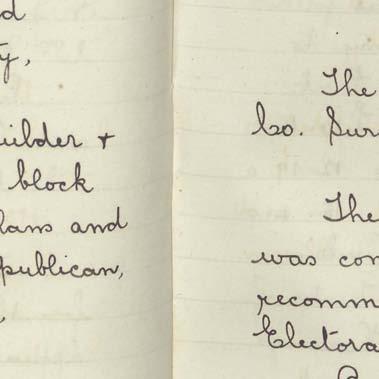 d
y,
uilder +
block
lans and
publican,
The
Co. Sur
The
was con
recomm
Electora